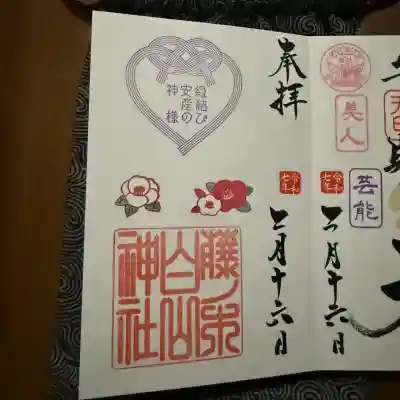 縁結び
安産の
神様
奉拝
令和七年
月十六日
白山
神社
美人
芸能
令和七年
月十六日